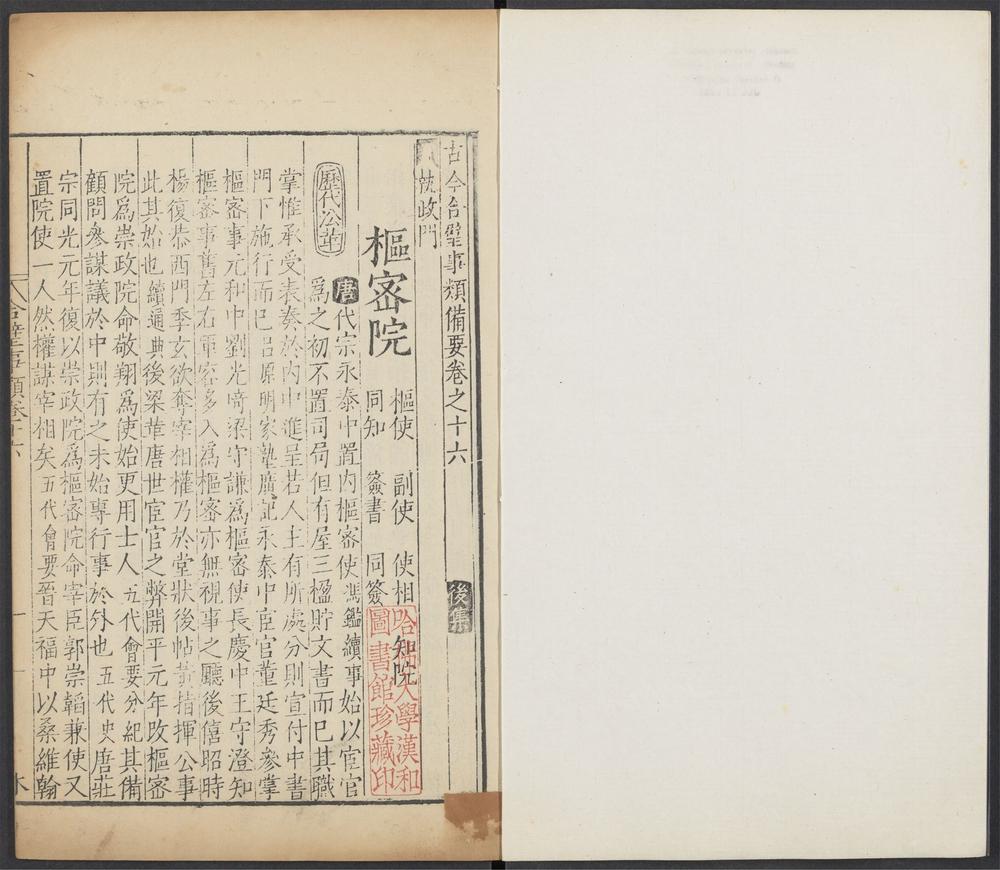 古今合璧事類備要卷之十六 後集
執政門
樞密院 樞使 副使 使相 知院
同知 簽書 同簽
哈佛大學漢和
圖書館珍藏印
歷代沿革 唐代宗永泰中置內樞密使馮鑑續事始以宦官
爲之初不置司局但有屋三楹貯文書而已其職
掌惟承受表奏於內中進呈若人主有所處分則宣付中書
門下施行而已呂原明家塾廣記永泰中宦官董廷秀參掌
樞密事元和中劉光琦梁守謙爲樞密使長慶中王守澄知
樞密事舊左右軍容多入爲樞密亦無視事之廳後僖昭時
楊復恭西門季玄欲奪宰相權乃於堂狀後帖黃指揮公事
此其始也續通典後梁革唐世宦官之弊開平元年改樞密
院爲崇政院命敬翔爲使始更用士人五代會要分紀其備
顧問參謀議於中則有之未始專行事於外也五代史唐莊
宗同光元年復以崇政院爲樞密院命宰臣郭崇韜兼使又
置院使一人然權謀宰相矣五代會要晉天福中以桑維翰
合璧事類卷十六 一